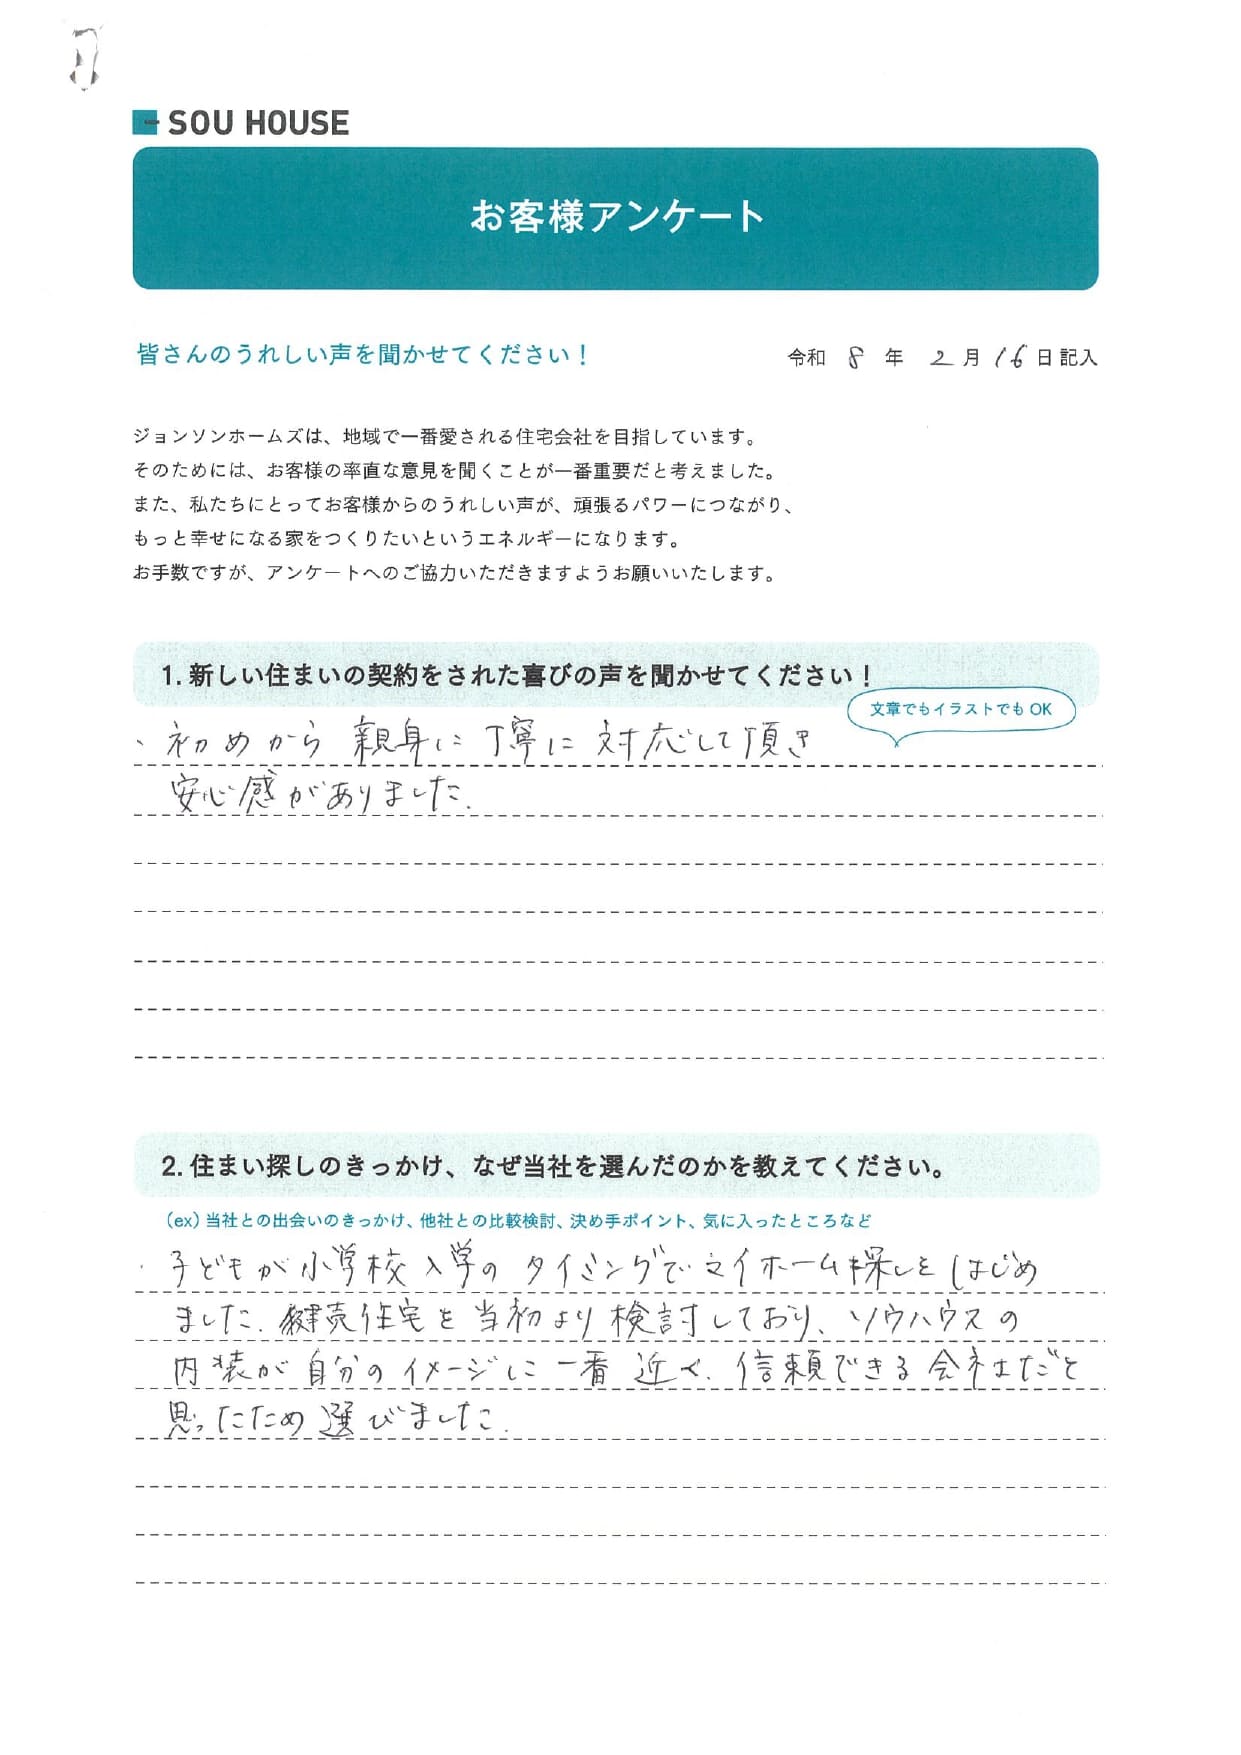 SOU HOUSE
お客様アンケート
皆さんのうれしい声を聞かせてください！
令和 8 年 2 月 16 日記入
ジョンソンホームズは、地域で一番愛される住宅会社を目指しています。
そのためには、お客様の率直な意見を聞くことが一番重要だと考えました。
また、私たちにとってお客様からのうれしい声が、頑張るパワーにつながり、
もっと幸せになる家をつくりたいというエネルギーになります。
お手数ですが、アンケートへのご協力いただきますようお願いいたします。
1. 新しい住まいの契約をされた喜びの声を聞かせてください！
文章でもイラストでも OK
・初めから 親身に 丁寧に 対応して頂き
安心感がありました.
2. 住まい探しのきっかけ、なぜ当社を選んだのかを教えてください。
（ex）当社との出会いのきっかけ、他社との比較検討、決め手ポイント、気に入ったところなど
・子どもが小学校入学の タイミングで マイホーム探しを はじめ
ました. 建売住宅を 当初より 検討しており、ソウハウスの
内装が 自分の イメージに 一番 近く. 信頼できる 会社だと
思ったため 選びました.